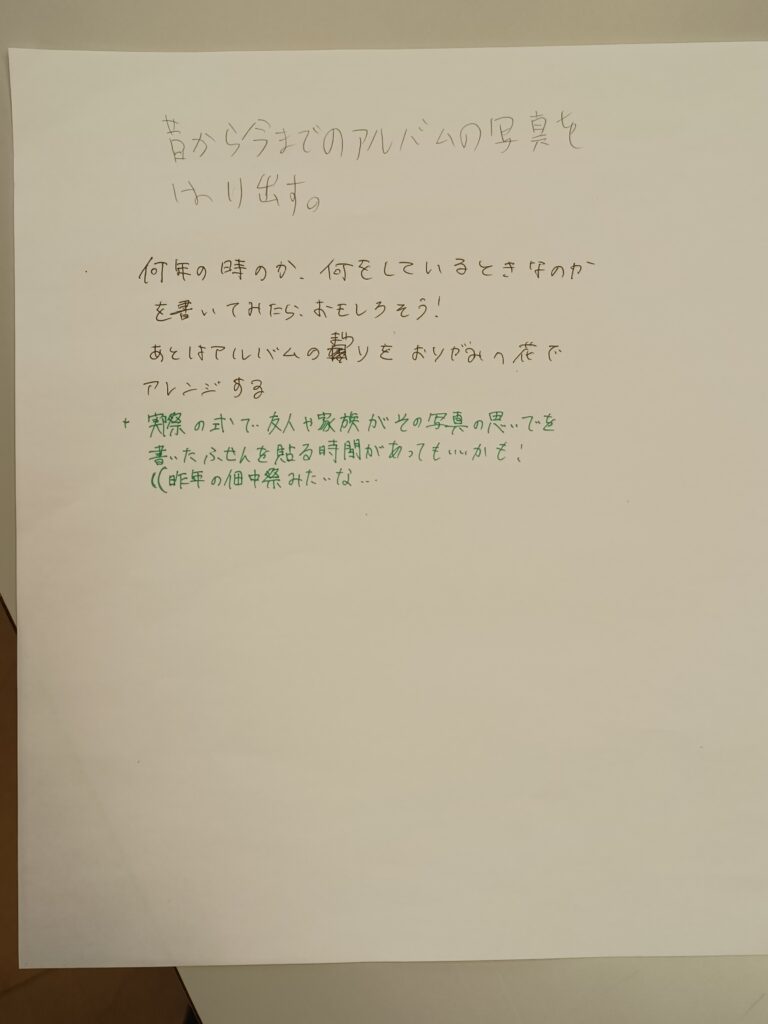 昔から今までのアルバムの写真を
はり出す。
何年の時のか、何をしているときなのか
を書いてみたら、おもしろそう!
あとはアルバムのまわりをおりがみの花で
アレンジする
+ 実際の式で友人や家族がその写真の思いでを
書いたふせんを貼る時間があってもいいかも!
((昨年の佃中祭みたいな...